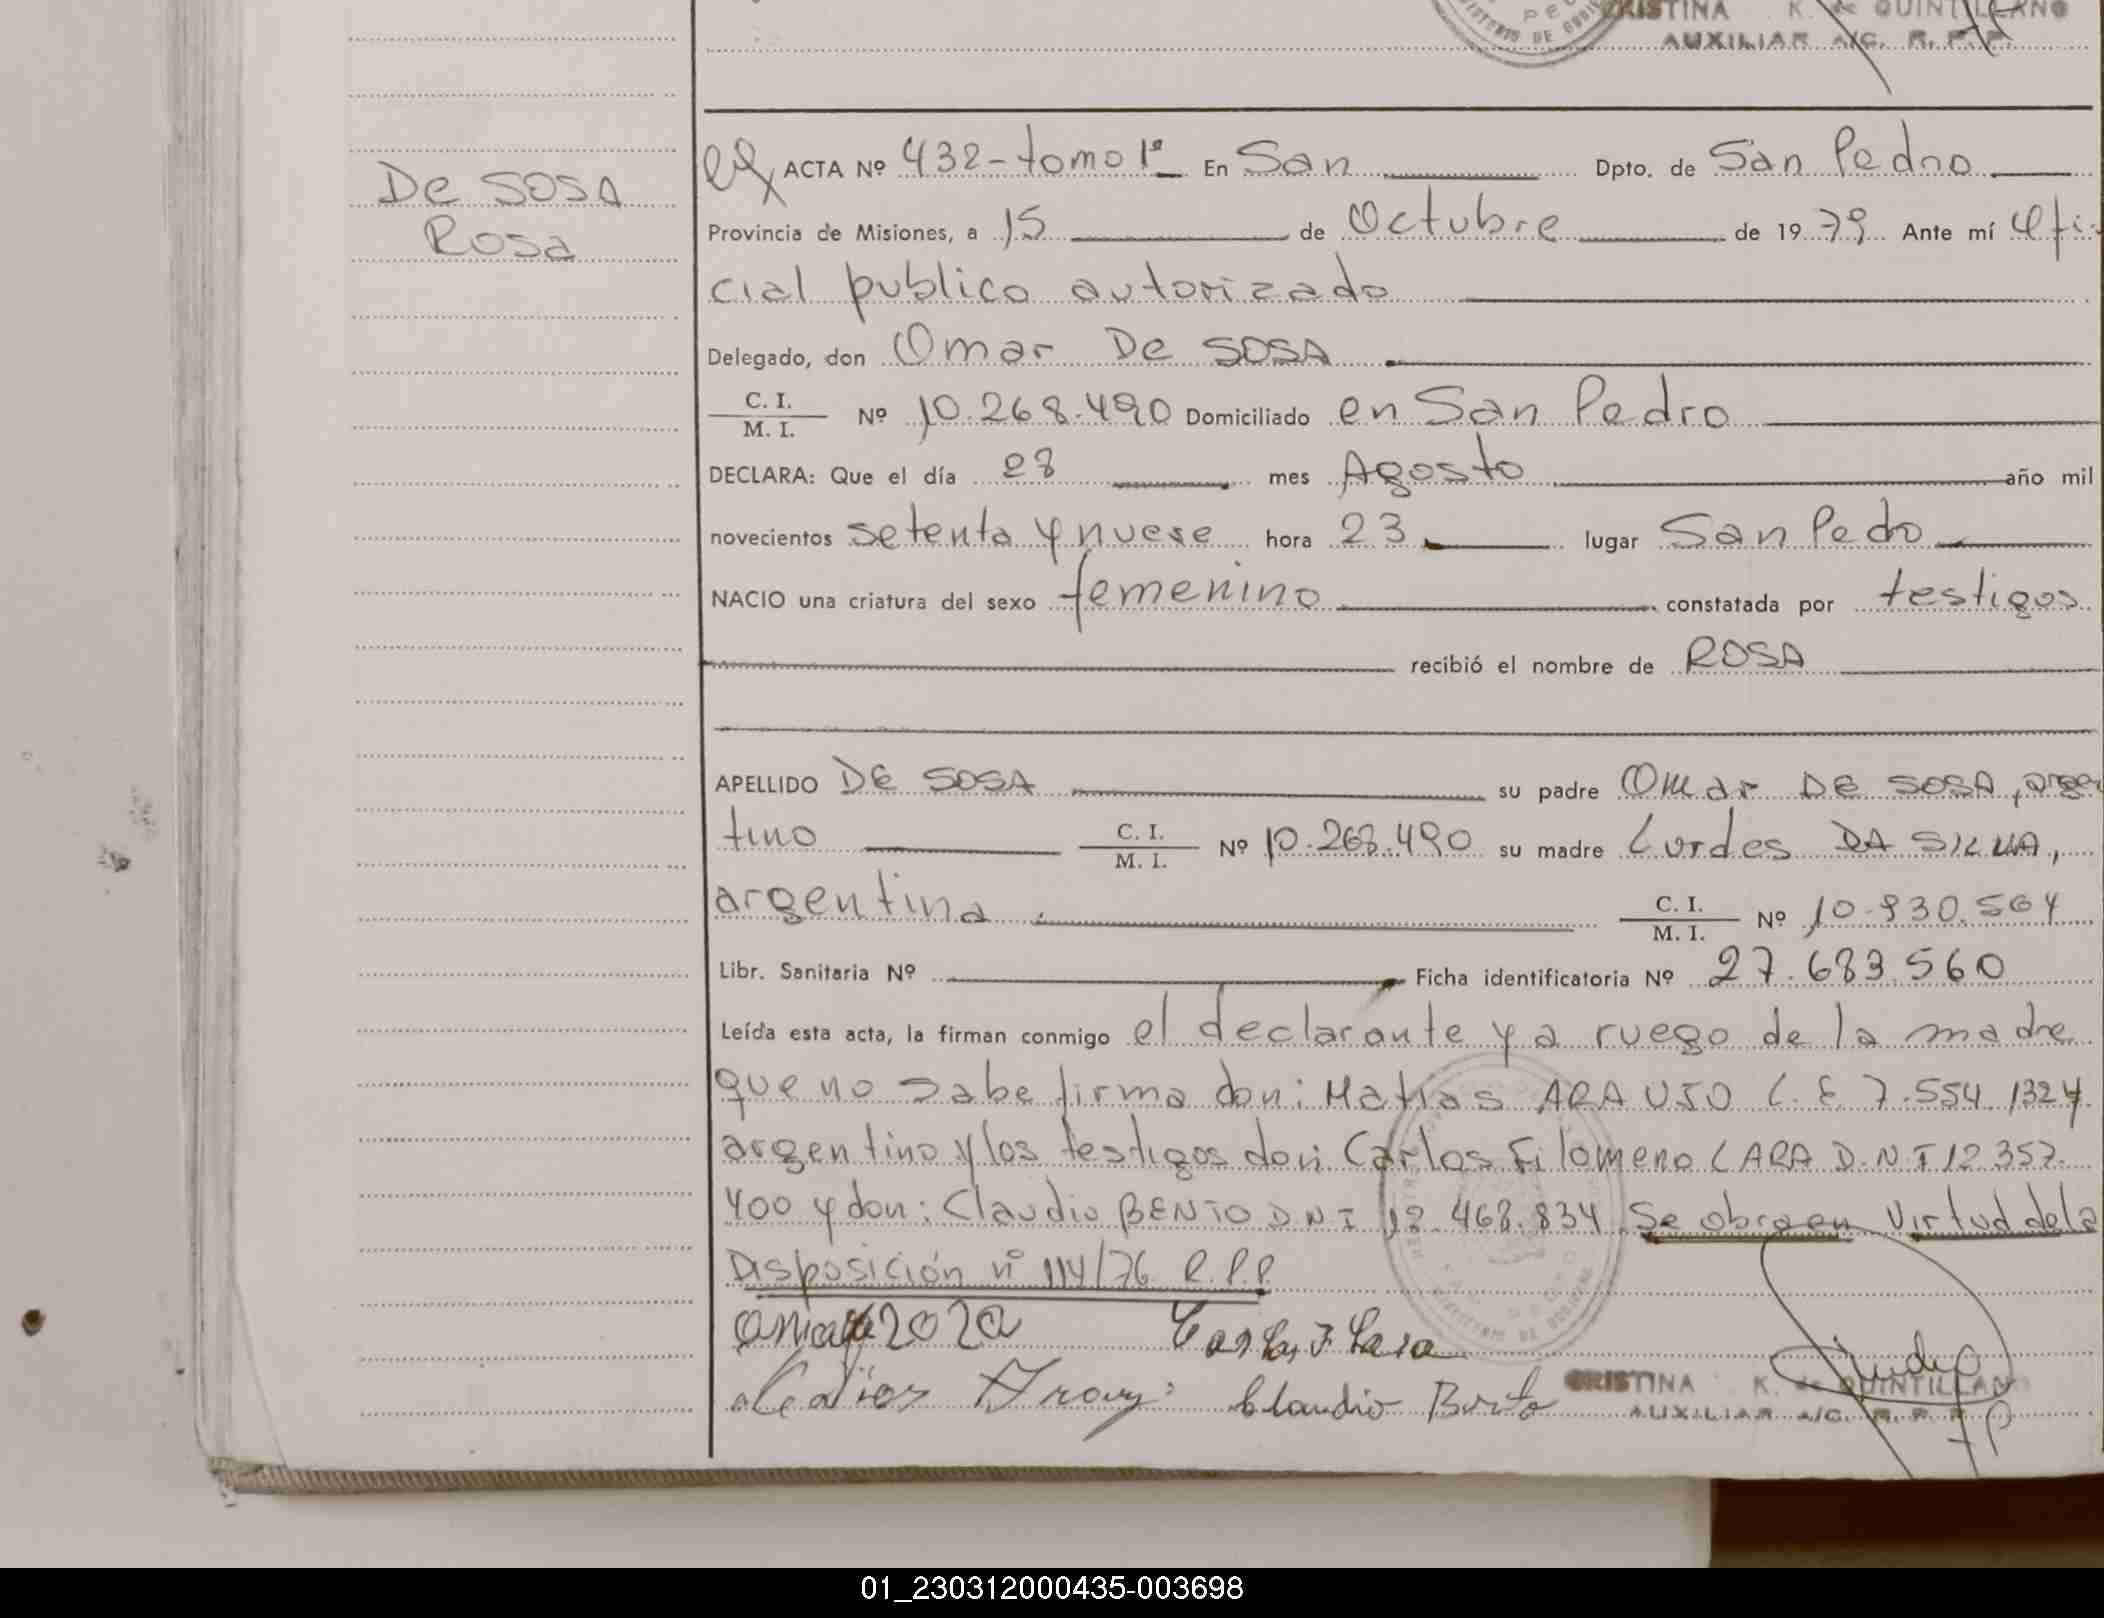 CRISTINA K. de QUINTILLANO
AUXILIAR A/C. R. P. P.
De SOSA
Rosa
ACTA Nº 432-tomo 1º En San Dpto. de San Pedro
Provincia de Misiones, a 15 de Octubre de 19 79 Ante mí Ofi-
cial publico autorizado
Delegado, don Omar De SOSA
C. I.
M. I. Nº 10.268.490 Domiciliado en San Pedro
DECLARA: Que el día 28 mes Agosto año mil
novecientos setenta y nueve hora 23 lugar San Pedro
NACIO una criatura del sexo femenino constatada por testigos
recibió el nombre de ROSA
APELLIDO DE SOSA su padre Omar DE SOSA, argen
tino C. I.
M. I. Nº 10.268.490 su madre Lurdes DA SILVA,
argentina C. I.
M. I. Nº 10.930.564
Libr. Sanitaria Nº Ficha identificatoria Nº 27.683.560
Leída esta acta, la firman conmigo el declarante y a ruego de la madre
que no sabe firma don: Matias ARAUJO C. E 7.554.1324
argentino y los testigos don: Carlos Filomeno LARA D.N.I 12 357.
400 y don: Claudio BENTO D N I 12.468.834 Se obra en Virtud de la
Disposición nº 114/76 R.P.P.
Carlos F Lara
Claudio Bento
CRISTINA K. de QUINTILLANO
AUXILIAR A/C. R. P. P.
01_230312000435-003698